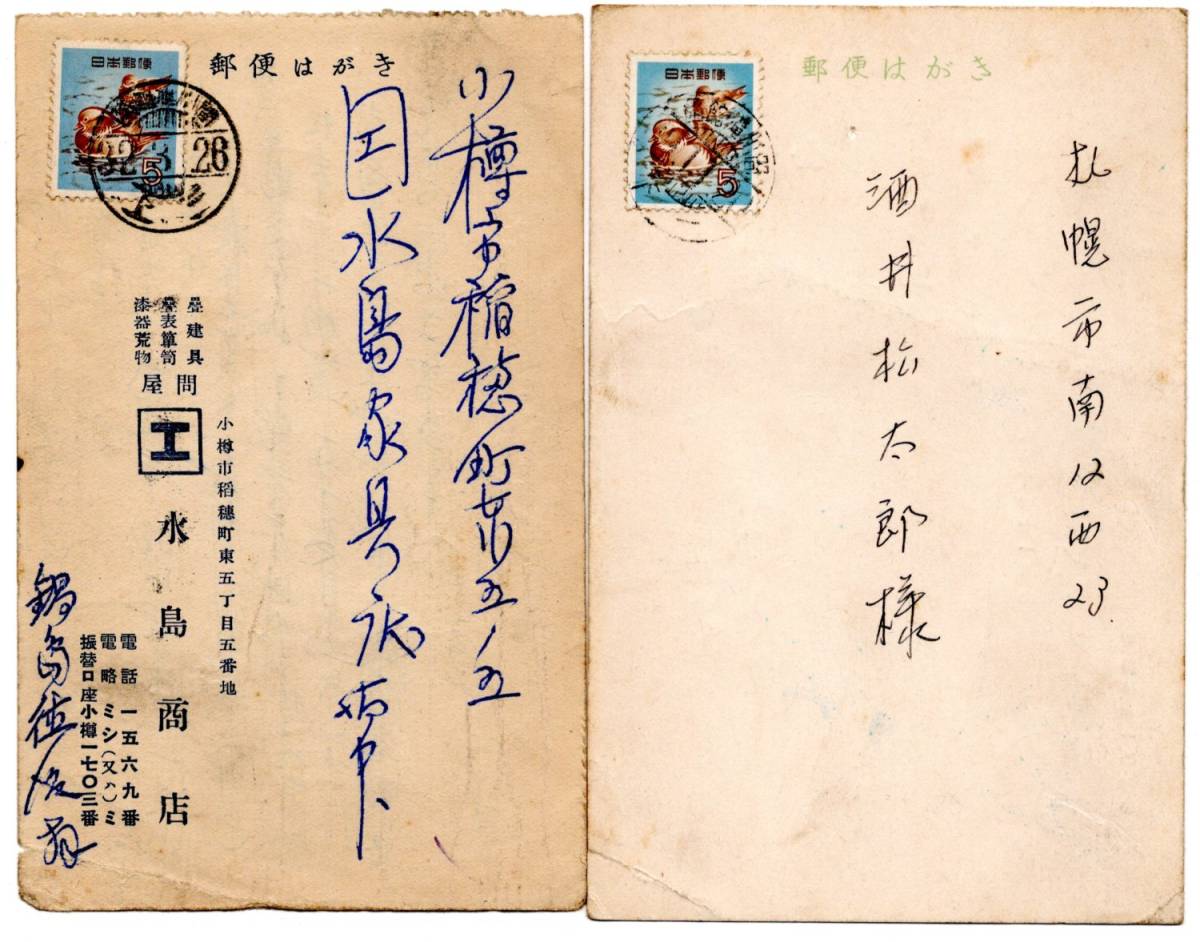 郵便はがき
日本郵便
5
小樽市稲穂町東五ノ五
水島家具店
疊建具
疊表簞笥
漆器荒物
問屋
エ
小樽市稲穂町東五丁目五番地
水島商店
電話一五六九番
電略ミシ(又ハ)ミ
振替口座小樽一七〇三番
鍋島
郵便はがき
日本郵便
5
札幌市南12西23
酒井松太郎様